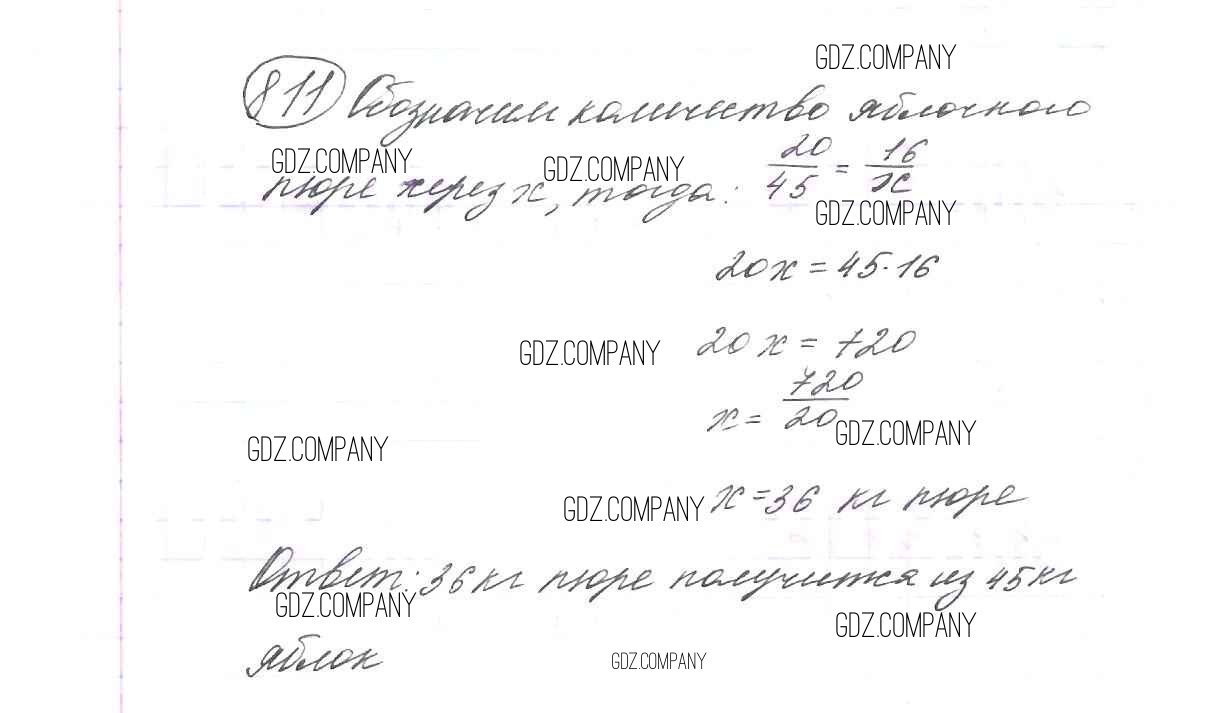 GDZ.COMPANY
811 Обозначим количество яблочного
GDZ.COMPANY GDZ.COMPANY
пюре через x, тогда: 20/45 = 16/x
GDZ.COMPANY
20x = 45·16
GDZ.COMPANY 20x = 720
x = 720/20
GDZ.COMPANY
GDZ.COMPANY
GDZ.COMPANY x = 36 кг пюре
Ответ: 36 кг пюре получится из 45 кг
GDZ.COMPANY
GDZ.COMPANY
яблок
GDZ.COMPANY